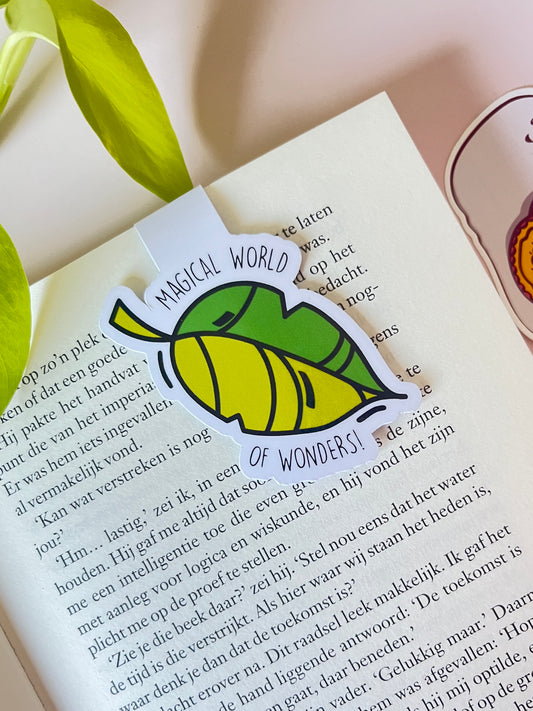 MAGICAL WORLD
OF WONDERS!
te laten
was.
d op het
gedacht.
n nog-
op zo'n plek
ken of dat een goede
'Hij pakte het handvat
punt die van het imperia
Er was hem iets ingevallen
al vermakelijk vond.
'Kan wat verstreken is nog
jou?'
'Hm… lastig,' zei ik, in een
houden. Hij gaf me altijd dat soo
me een intelligentie toe die even gro s de zijne,
met aanleg voor logica en wiskunde, en hij vond het zijn
plicht me op de proef te stellen.
'Zie je die beek daar?' zei hij. 'Stel nou eens dat het water
de tijd is die verstrijkt. Als hier waar wij staan het heden is,
waar denk je dan dat de toekomst is?'
dacht erover na. Dit raadsel leek makkelijk. Ik gaf het
de hand liggende antwoord: 'De toekomst is
aan gaat, daar beneden.'
n vader. 'Gelukkig maar.' Daarn
hem was afgevallen: 'Hor